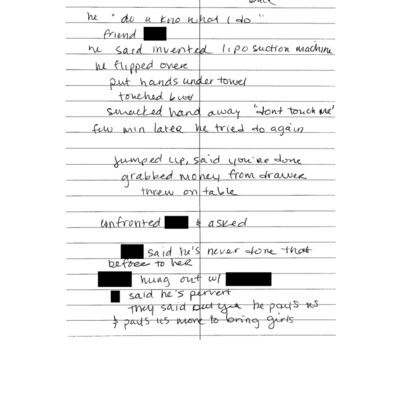 he "do u kno what I do"
friend
he said invented liposuction machine
he flipped over
put hands under towel
touched
smacked hand away "dont touch me"
few min later he tried to again
jumped up, said you're done
grabbed money from drawer
threw on table
unfronted & asked
said he's never done that
before to her
hung out w/
said he's pervert
they said but he pays us
& pays us more to bring girls